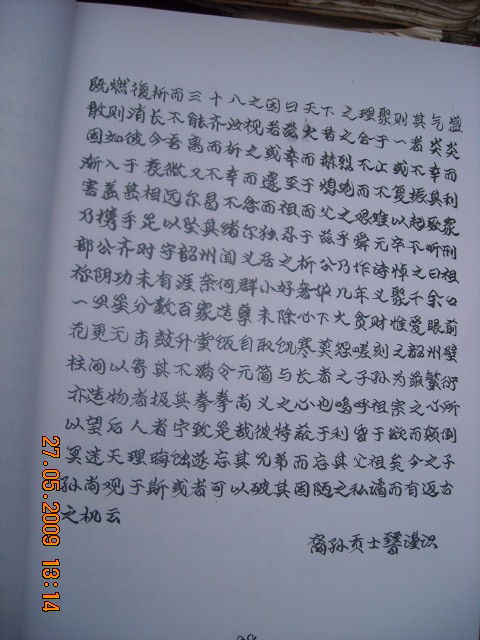 既燃復析而三十八之因曰天下之理聚则其气盛
散则消长不能齐汝视若兹火者之会于一者炎炎
固如彼今吾离而析之或幸而赫烈不止或不幸而
渐入于衰微又不幸而遽至于熄灺而不复振其利
害盖甚相远尔曷不念而祖而父之艰难以起歐家
乃携手足以坠其绪尔独忍于兹乎舜元卒不听刑
部公齐时守韶州闻义居之析公乃作诗悼之曰祖
称阴功未有涯奈何群小好奢华几年义聚千余口
一旦星分数百家造孽未除心下火贪财惟爱眼前
花更无击鼓升堂饭自取饥寒莫怨嗟刻之韶州壁
柱间以寄其不满令元简与长者之子孙为最繁衍
亦造物者极其拳拳尚义之心也鸣呼祖宗之心所
以望后人者宁致是哉彼特蔽于利昏于欲而颠倒
冥迷天理晦蚀遂忘其兄弟而忘其父祖矣今之子
孙尚观于斯或者可以破其固陋之私谲而有返古
之机云
裔孙贡士謩漫识
27.05.2009 13:14